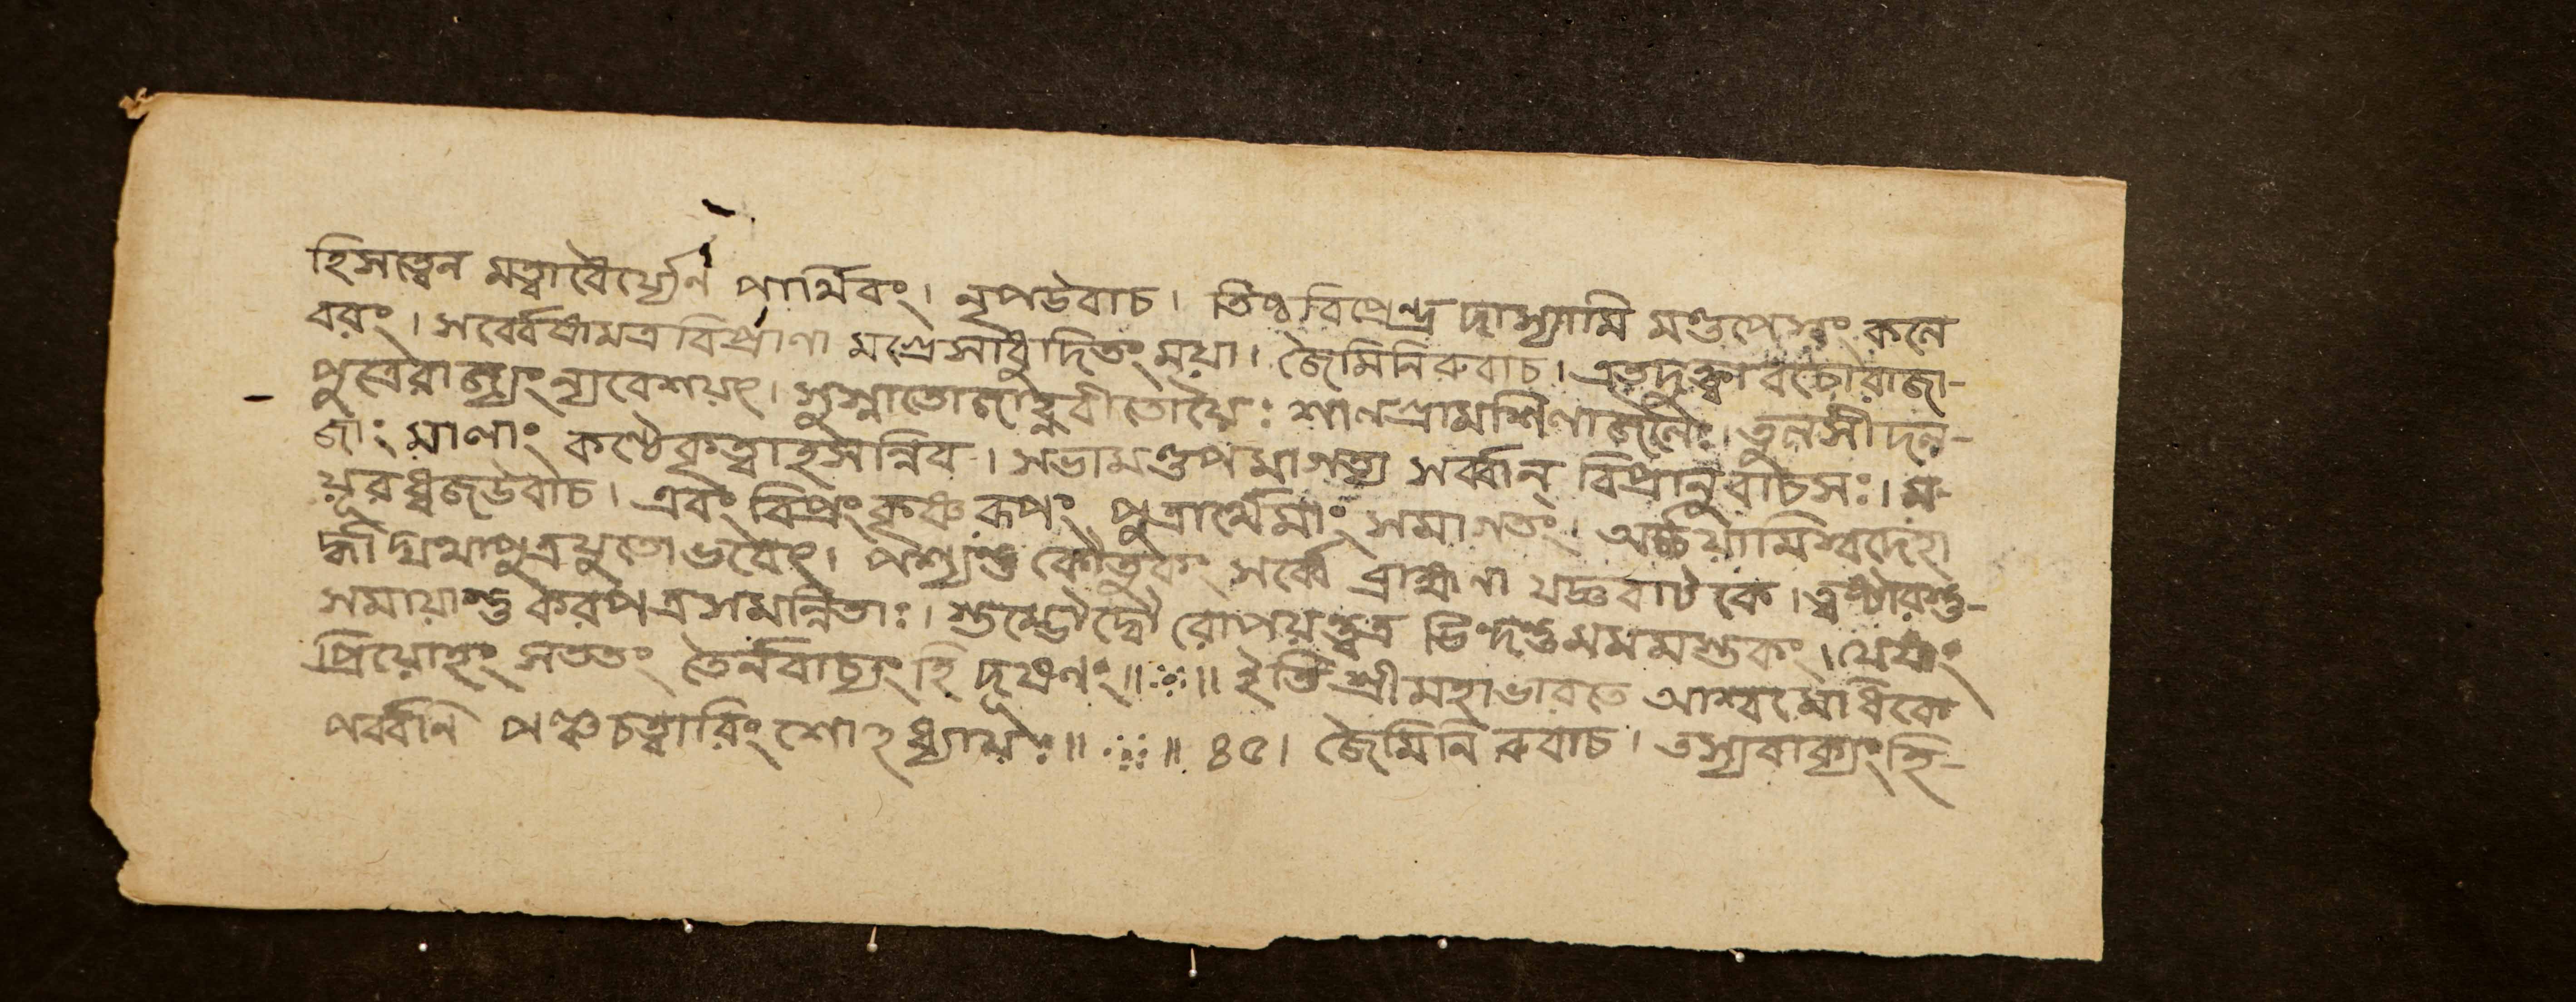 হিসত্বেন মত্বাবৈর্য্যেন পার্থিবং। নৃপউবাচ। তিষ্ঠবিপ্রেন্দ্র দাস্যামি মণ্ডপেসং কলে
বরং। সর্ব্বেষামত্রবিপ্রাণা মগ্রেসাধুদিতং ময়া। জৈমিনিরুবাচ। এতদুক্ত্বাবচোরাজা-
পুত্রেরাজ্যং ন্যবেশয়ৎ। সুস্নাতোজাহ্নবীতোয়ৈঃ শালগ্রামশিলাজলৈঃ। তুলসীদল-
জাং মালাং কণ্ঠেকৃত্বাহসন্নিব। সভামণ্ডপমাগত্য সর্ব্বান্ বিপ্রানুবাচসঃ। ম-
য়ূরধ্বজউবাচ। এবং বিপ্রং কৃষ্ণরূপং পুত্রার্থেমাং সমাগতং। অর্চ্চয়ামিস্বদেহা
র্দ্ধাদ্যথাপুত্রযুতোভবেৎ। পশ্যন্তু কৌতুকং সর্ব্বে ব্রাহ্মণা যজ্ঞবাটকে। ত্বষ্টারস্তু-
সমায়ান্তু করপত্রসমন্বিতাঃ। স্তম্ভৌদ্বৌ রোপয়ন্ত্বত্র ভিন্দন্তুমমমস্তকং। যেষাং
প্রিয়োহং সততং তৈর্নবাচ্যং হি দূষণং॥ ॥ ইতি শ্রীমহাভারতে আশ্বমেধিকে
পর্ব্বনি পঞ্চচত্বারিংশোঽধ্যায়ঃ॥ ॥ ৪৫। জৈমিনিরুবাচ। তস্যবাক্যংহি-